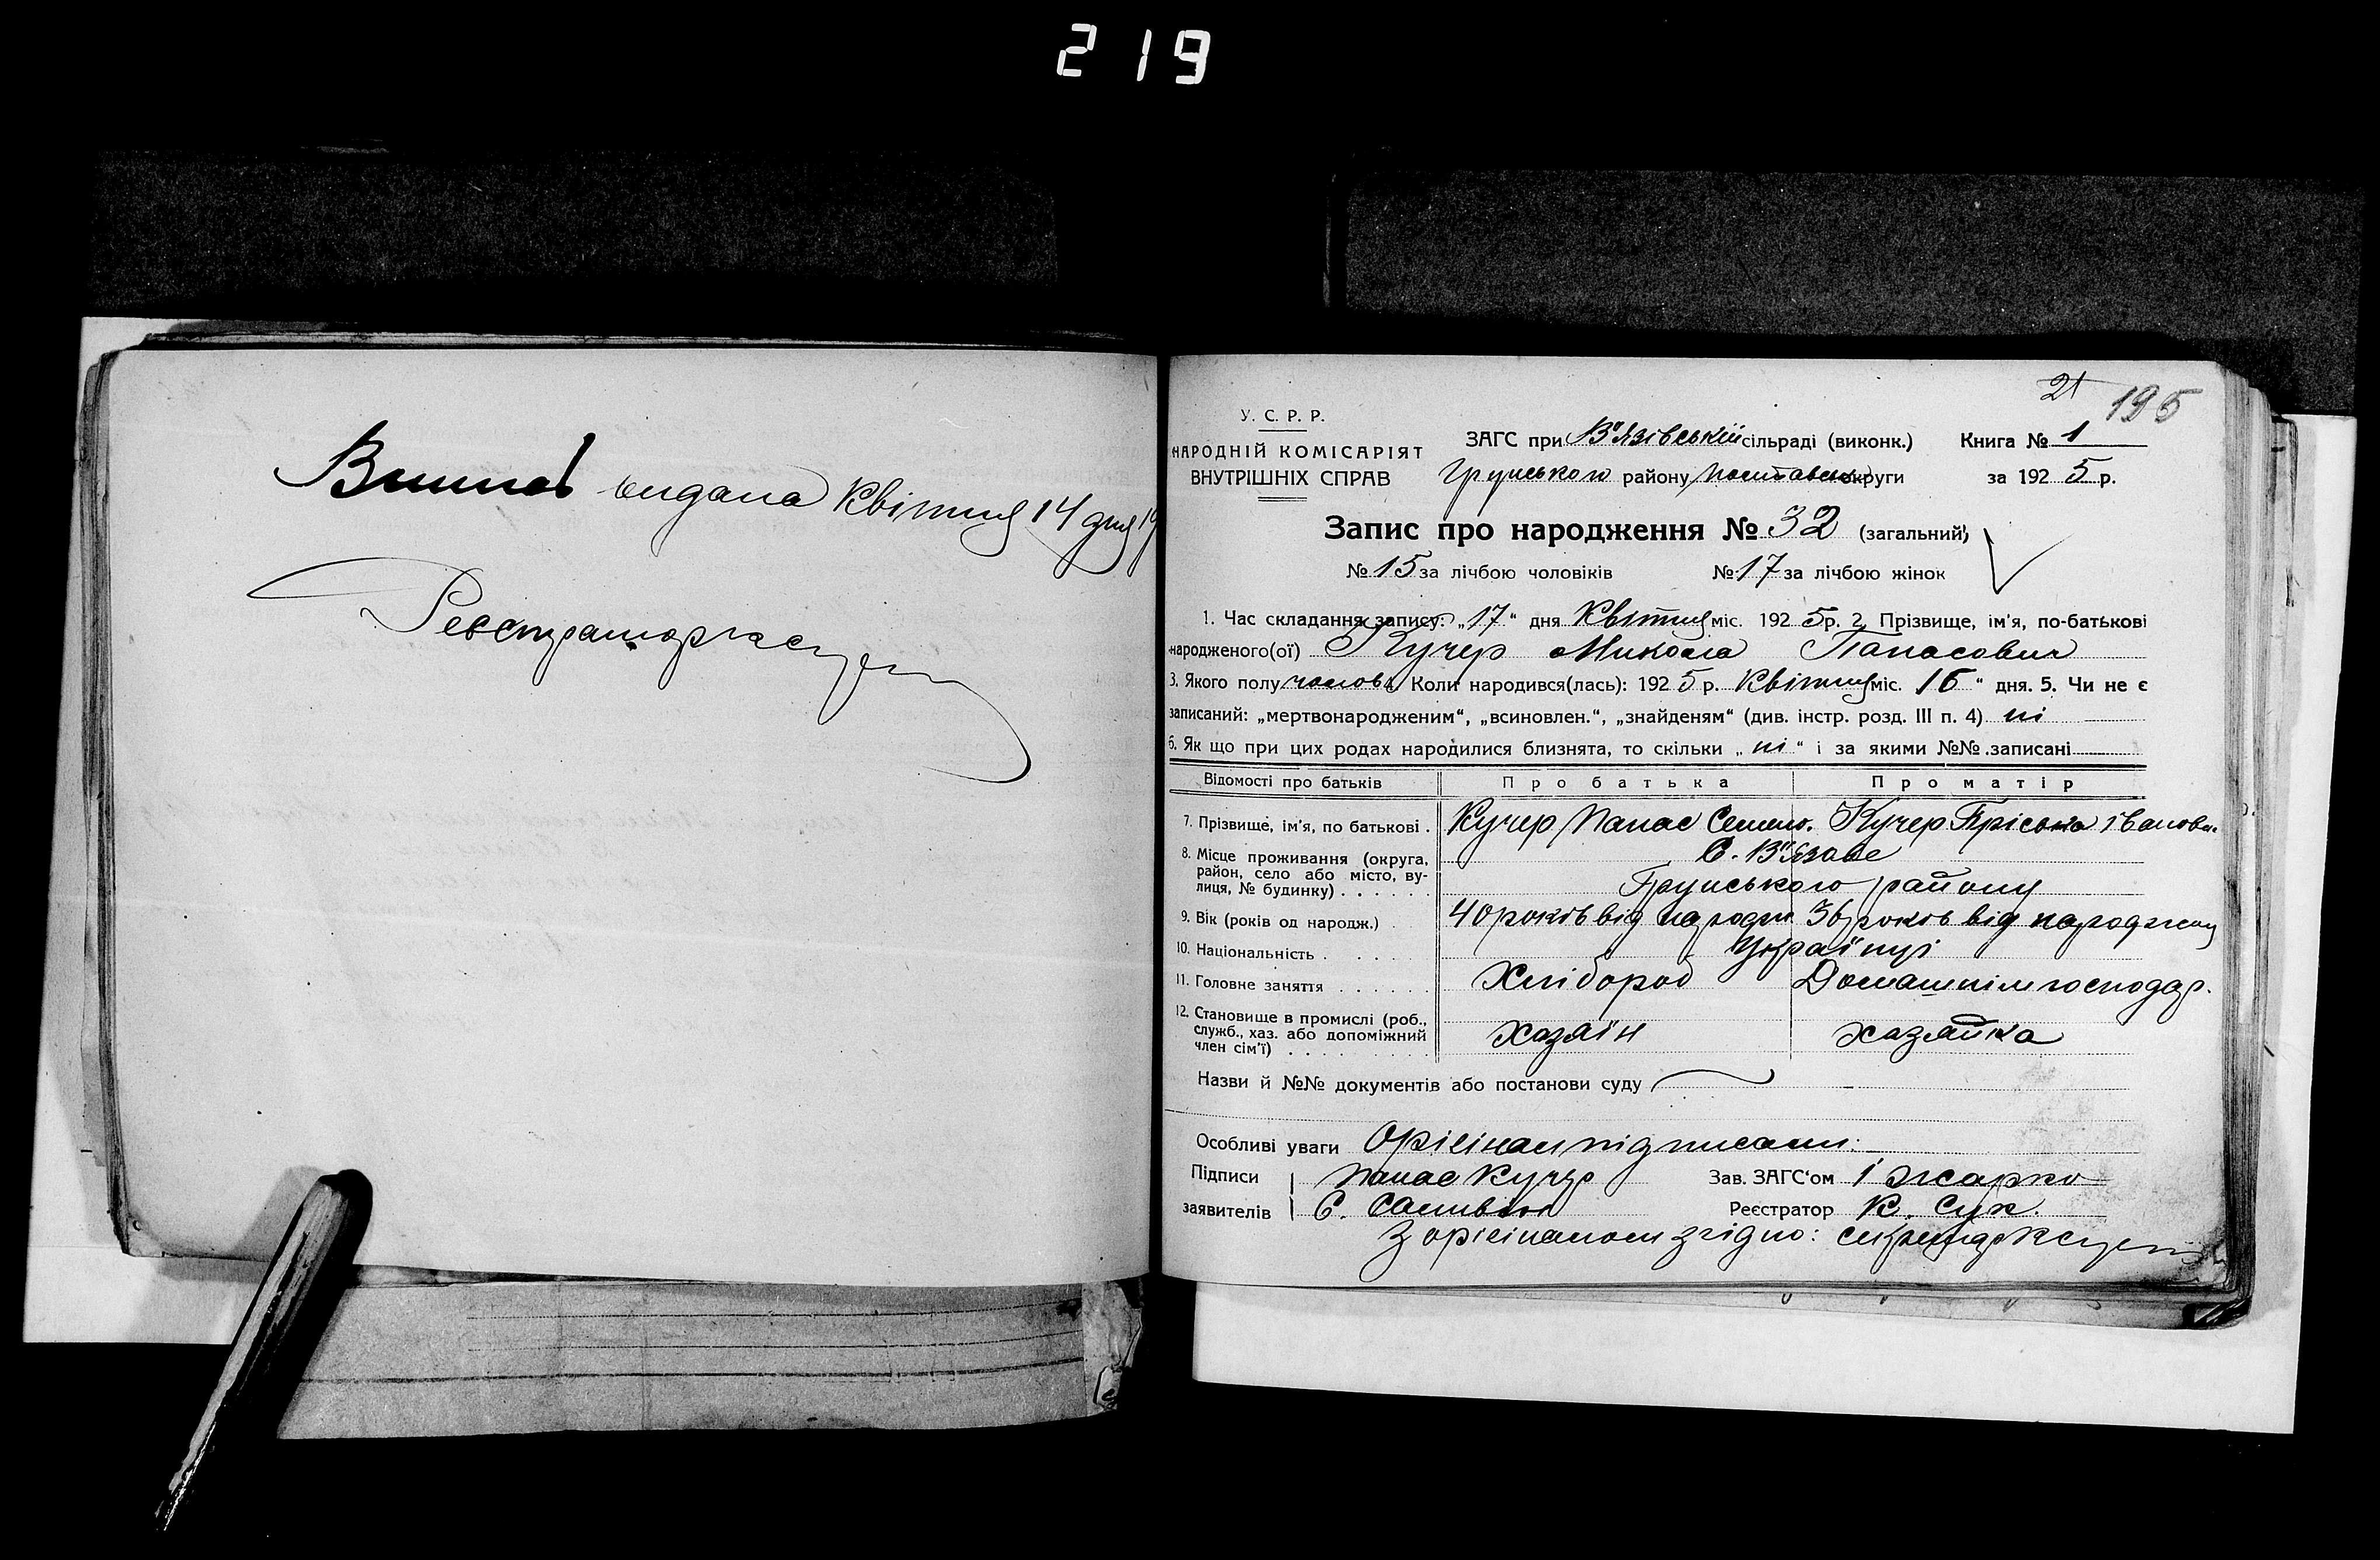 219
видана Квітня 14 дня 19
Реєстратор КСущ
21 195
У. С. Р. Р.
НАРОДНІЙ КОМІСАРІЯТ
ВНУТРІШНІХ СПРАВ
ЗАГС при В'Язівській сільраді (виконк.) Книга № 1
Грунського району Полтавськ округи за 1925 р.
Запис про народження № 32 (загальний)
№ 15 за лічбою чоловіків № 17 за лічбою жінок
1. Час складання запису: „17“ дня Квітня міс. 1925р. 2. Прізвище, ім'я, по-батькові
народженого(ої) Кучер Микола Панасович
3. Якого полу чолов. Коли народився(лась): 1925 р. Квітня міс. 16 “ дня. 5. Чи не є
записаний: „мертвонародженим“, „всиновлен.“, „знайденям“ (див. інстр. розд. III п. 4) ні
6. Як що при цих родах народилися близнята, то скільки „ ні “ і за якими №№ записані
Відомості про батьків Про батька Про матір
7. Прізвище, ім'я, по батькові . Кучер Панас Семено. Кучер Пріська Іванови.
8. Місце проживання (округа, С. В'Язове
район, село або місто, ву-
лиця, № будинку) . . . . . Грунського району
9. Вік (років од народж.) 40 років від народж. 36 років від народжен
10. Національність . . . . . Українці
11. Головне заняття . . . . . . Хлібороб Домашнім господар.
12. Становище в промислі (роб.,
служб., хаз. або допоміжний хазяїн хазяйка
член сім'ї) . . . . . . . . .
Назви й №№ документів або постанови суду
Особливі уваги Орігінал підписали:
Підписи Панас Кучер Зав. ЗАГС'ом І Жарко
заявителів Є. Реєстратор К. Сук.
З орігіналом згідно: секретар